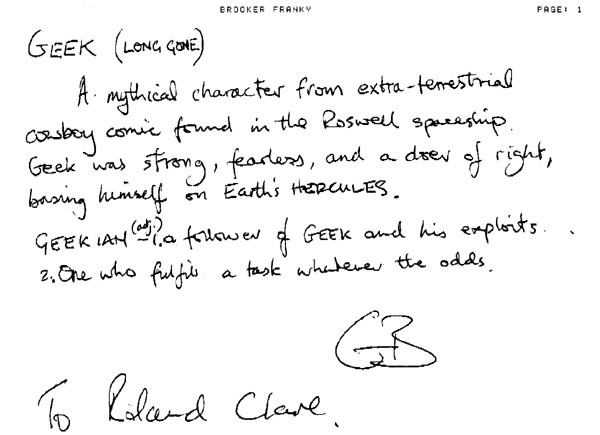 BROOKER FRANKY PAGE: 1
GEEK (LONG GONE)
A mythical character from extra-terrestrial
cowboy comic found in the Roswell spaceship.
Geek was strong, fearless, and a doer of right,
basing himself on Earth's HERCULES.
GEEKIAN (adj.) – 1. a follower of GEEK and his exploits.
2. One who fulfils a task whatever the odds.
GB
To Roland Clare.